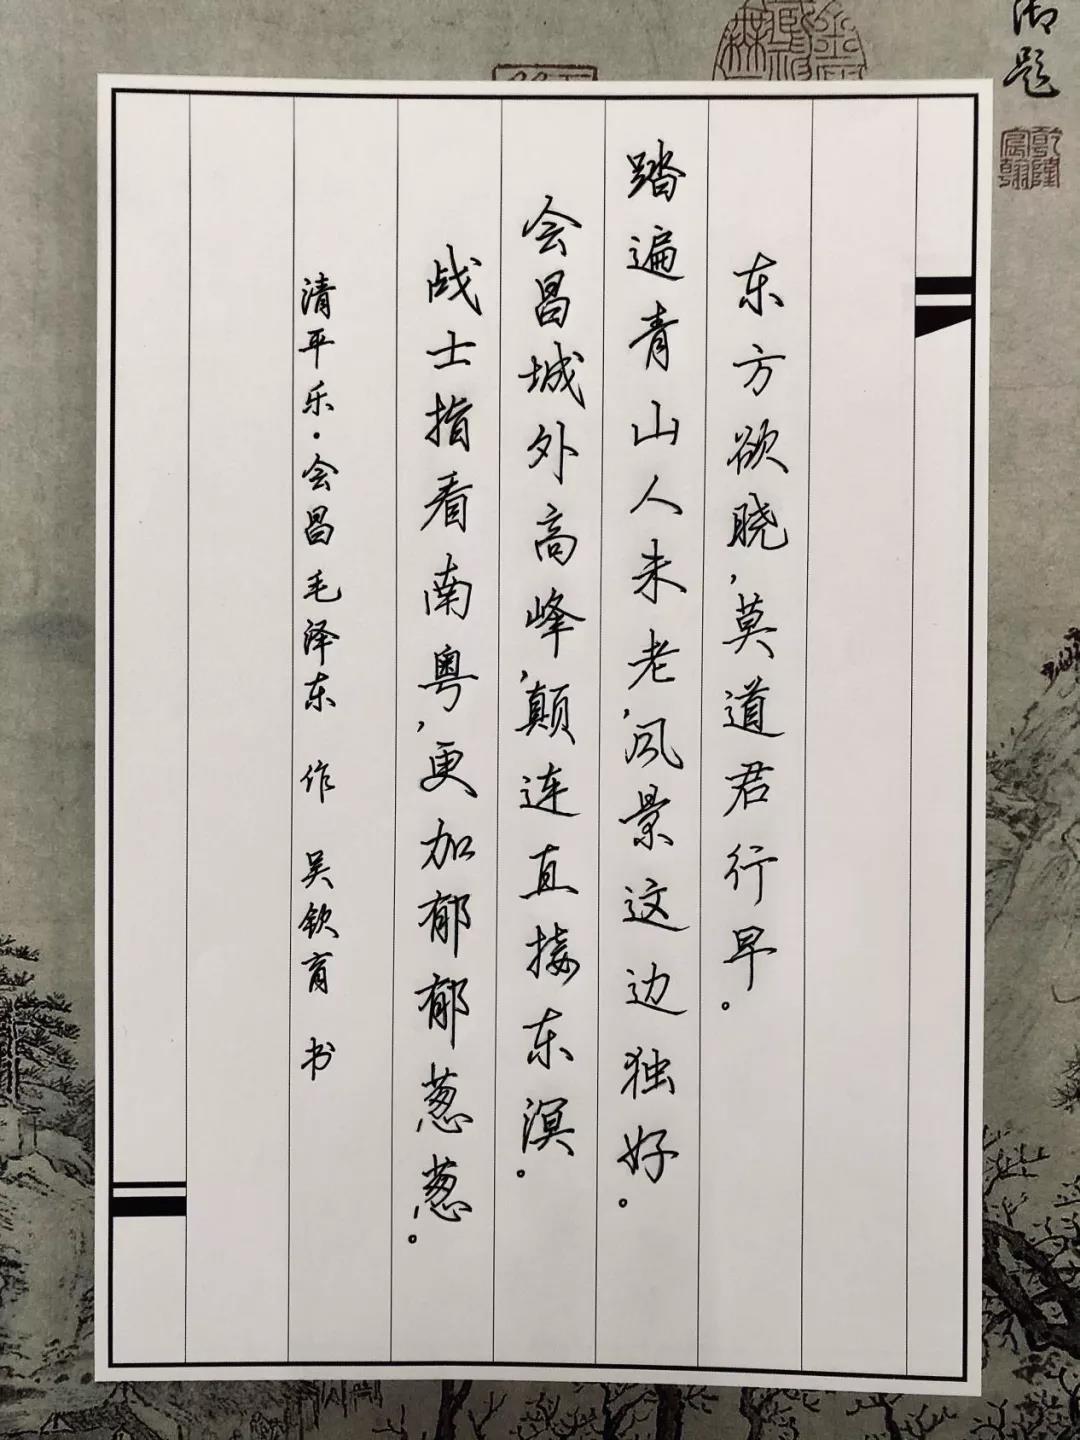 东方欲晓,莫道君行早。
踏遍青山人未老,风景这边独好。
会昌城外高峰,颠连直接东溟。
战士指看南粤,更加郁郁葱葱。
清平乐·会昌 毛泽东 作 吴钦育 书
御题
乾隆宸翰